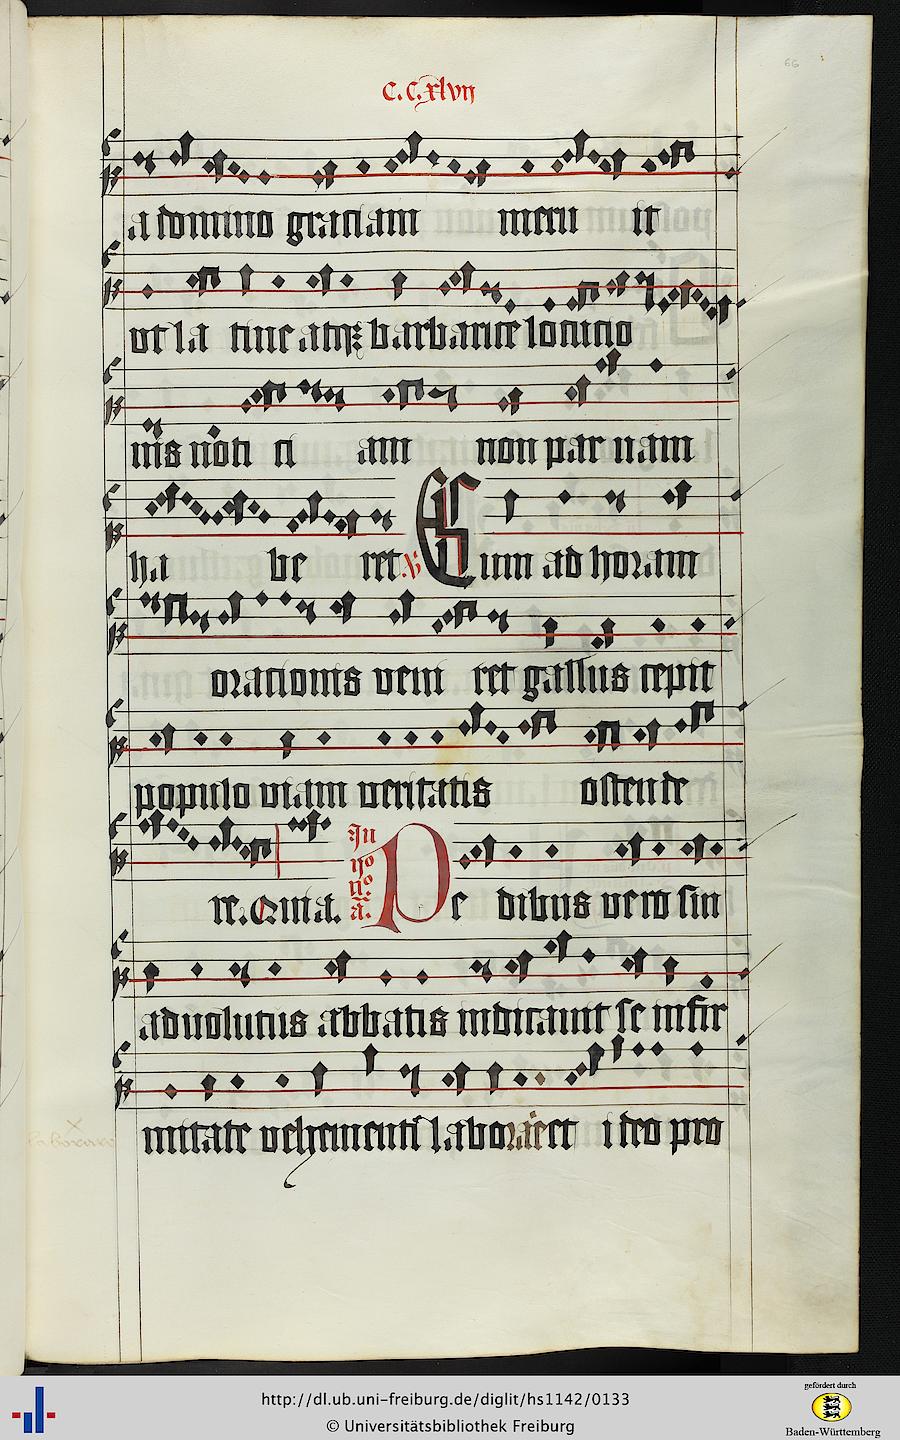 C.C.xlvij
66
a domino graciam meru it
vt la tine atq3 barbarice locucio
nis noti ci am non par uam
ha be ret V Cum ad horam
oracionis veni ret gallus cepit
populo viam veritatis ostende
re. Q. nia. In ijo no a. Pe dibus vero sin
aduolutus abbatis indicauit se infir
mitate vehementi laboraret ideo pro
http://dl.ub.uni-freiburg.de/diglit/hs1142/0133
© Universitätsbibliothek Freiburg
gefördert durch
Baden-Württemberg